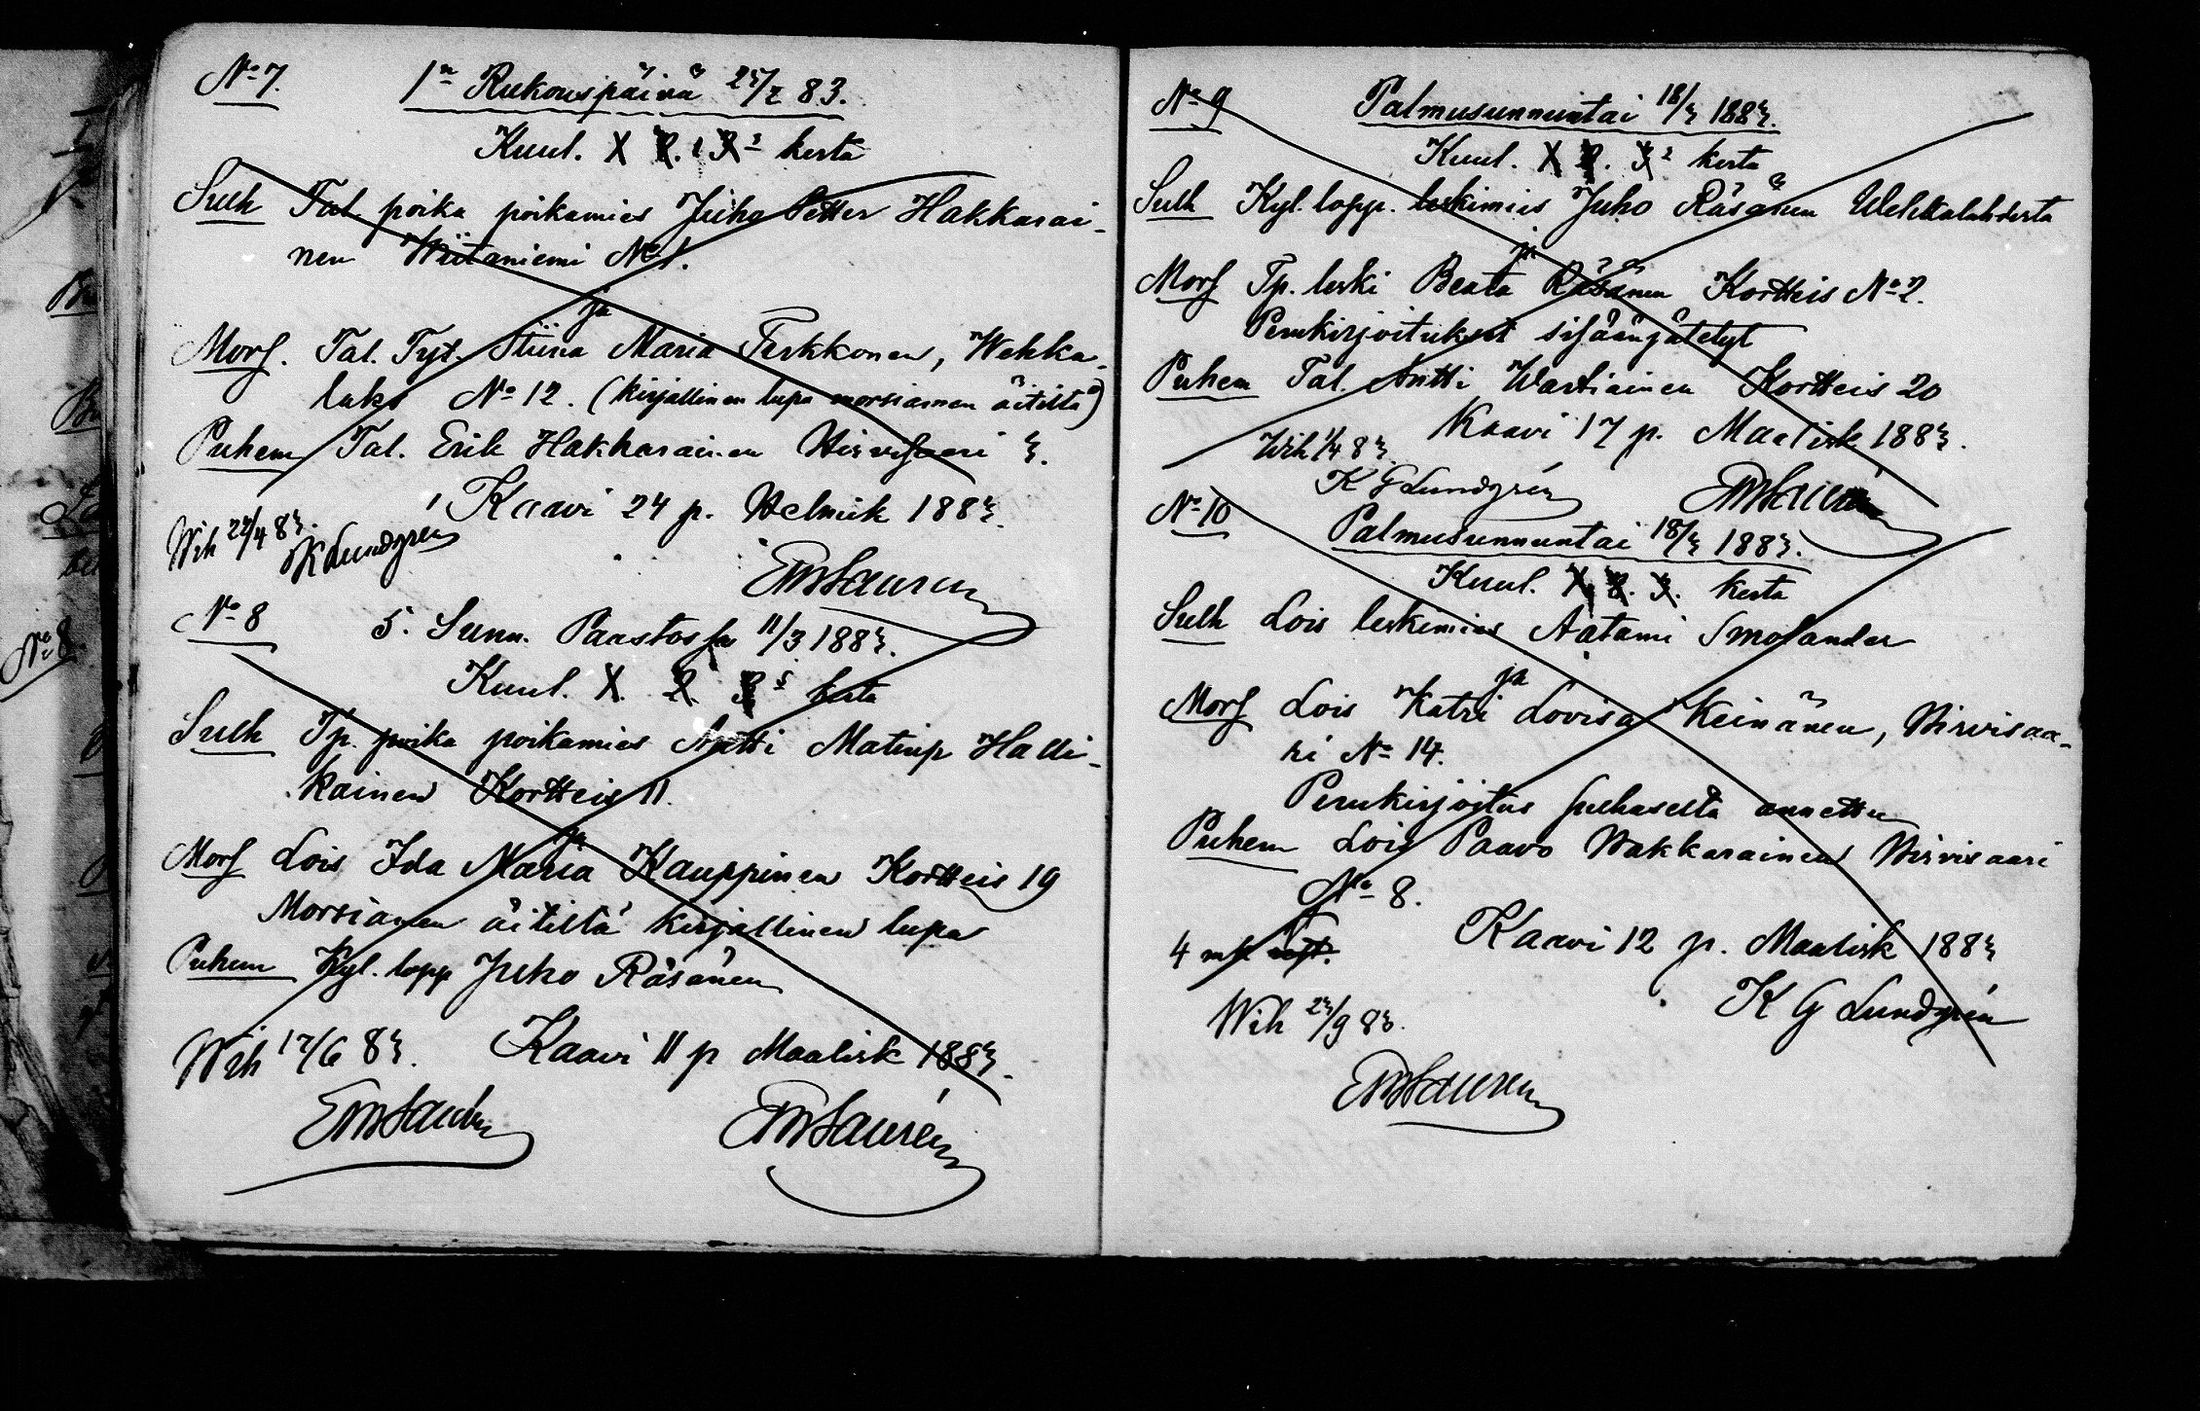 No 7. 1n Rukouspäivä 25/2 83.
Kuul. X 2. 3 kerta
Sulh Tal. poika poikamies Juho Petter Hakkarai-
nen Wiitaniemi No 1.
ja
Mors. Tal. Tyt. Stiina Maria Terkkonen, Wehka-
laks No 12. (kirjallinen lupa morsiamen äitiltä)
Puhem Tal. Erik Hakkarainen Hirvisaari 3.
Kaavi 24 p. Helmik 1883.
Wih 22/4 83. K Lundgrén
EWLaurén
No 8 5. Sunn. Paastossa 11/3 1883.
Kuul. X 2 3 kerta
Sulh Tp. poika poikamies Antti Matinp Halli-
kainen Kortteis 11.
ja
Mors Lois Ida Maria Kauppinen Kortteis 19
Morsiamen äitiltä kirjallinen lupa
Puhem Kyl. lopp Juho Räsänen
Wih 17/6 83. Kaavi 11 p Maalisk 1883.
No 9 Palmusunnuntai 18/3 1883.
Kuul. X 2. 3 kerta
Sulh Kyl. lopp. leskimies Juho Räsänen Wehkalahdesta
ja
Mors Tp. leski Beata Räsänen Kortteis No 2.
Perukirjoitukset sisäänjätetyt
Puhem Tal. Antti Wartiainen Kortteis 20
Kaavi 17 p. Maalisk 1883.
Wih 1/4 83
K G Lundgrén
No 10 Palmusunnuntai 18/3 1883.
Kuul. X. 2. 3. kerta
Sulh Lois leskimies Aatami Smolander
ja
Mors Lois Katri Lovisa Keinänen, Hirvisaa-
ri No 14.
Perukirjoitus sulhaselta annettu
Puhem Lois Paavo Hakkarainen Hirvisaari
No 8.
4 mk
Kaavi 12 p. Maalisk 1883
K G Lundgrén
Wih 23/9 83.